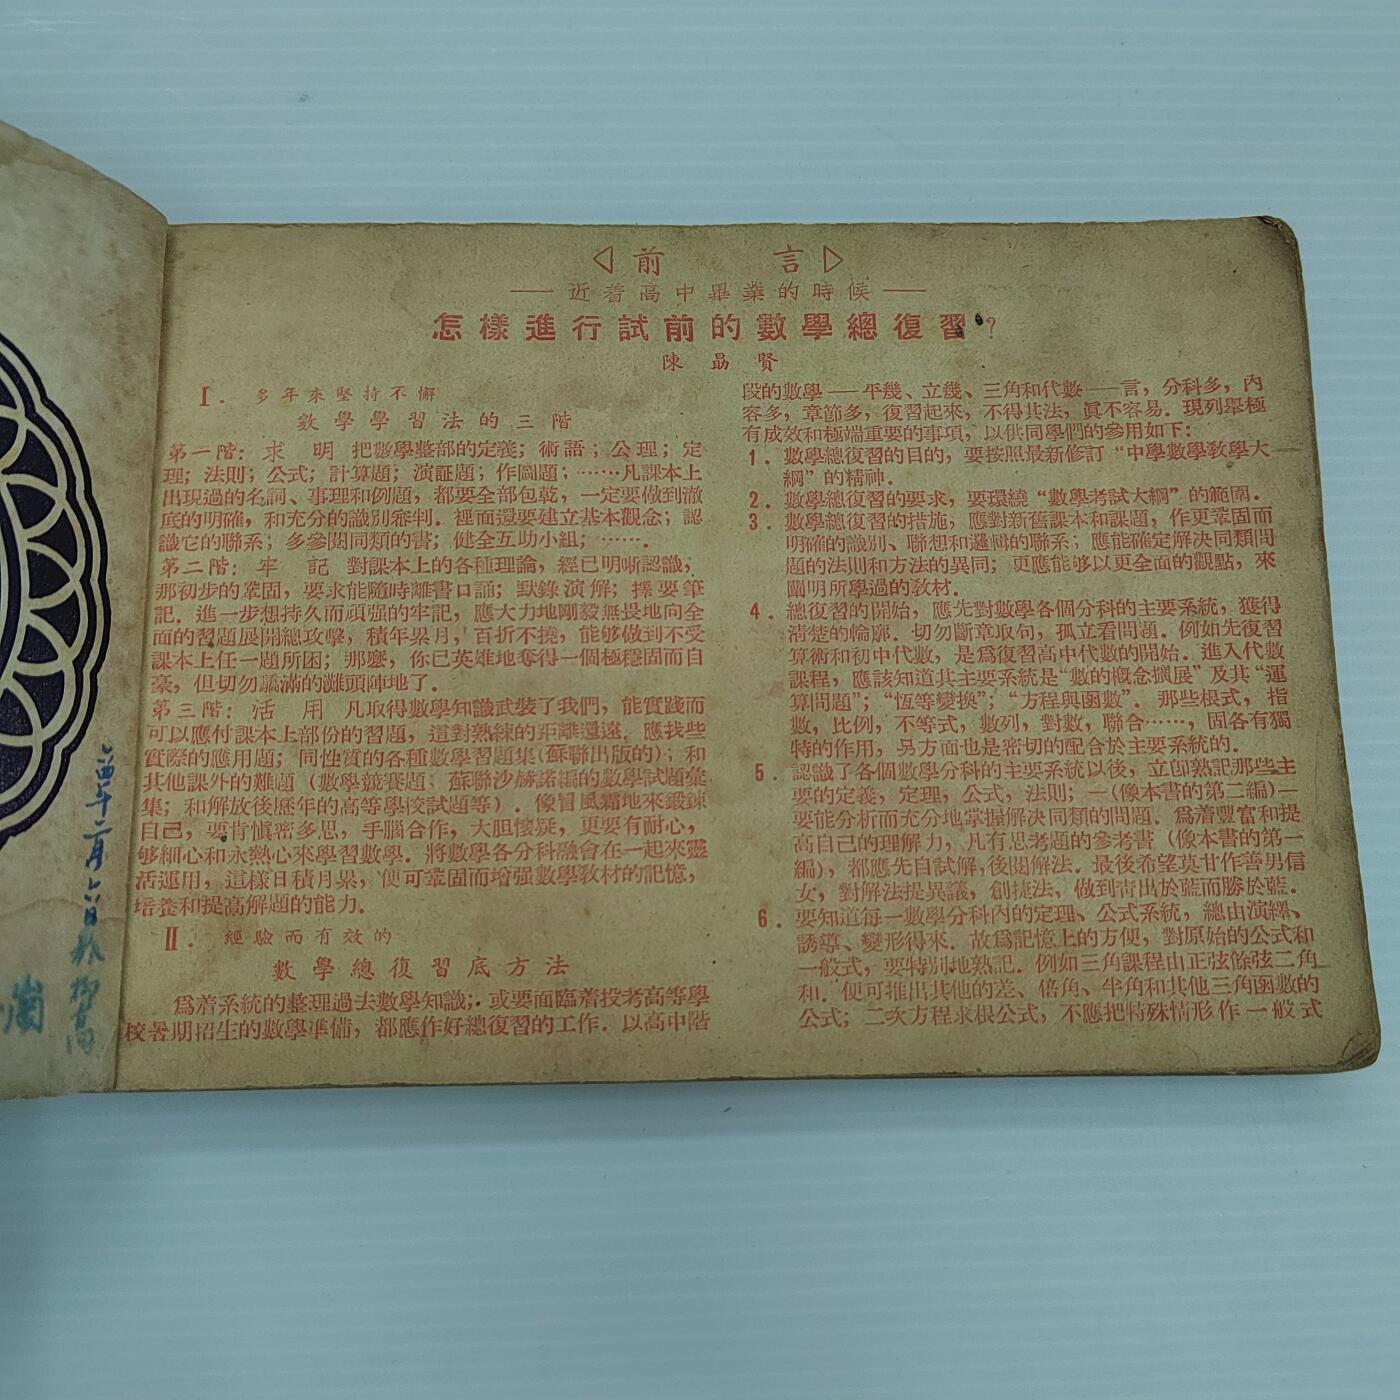 ◁前言▷
——近着高中畢業的時候——
怎樣進行試前的數學總復習?
陳勗賢
I. 多年來堅持不懈
數學學習法的三階
第一階: 求 明 把數學整部的定義; 術語; 公理; 定
理; 法則; 公式; 計算題; 演証題; 作圖題; ……凡課本上
出現過的名詞、事理和例題, 都要全部包乾, 一定要做到澈
底的明確, 和充分的識別審判. 裡面還要建立基本觀念; 認
識它的聯系; 多參閱同類的書; 健全互助小組; …….
第二階: 牢 記 對課本上的各種理論, 經已明晰認識,
那初步的鞏固, 要求能隨時離書口誦; 默錄演解; 擇要筆
記. 進一步想持久而頑强的牢記, 應大力地剛毅無畏地向全
面的習題展開總攻擊, 積年累月, 百折不撓, 能够做到不受
課本上任一題所困; 那麼, 你已英雄地奪得一個極穩固而自
豪, 但切勿驕滿的灘頭陣地了.
第三階: 活 用 凡取得數學知識武裝了我們, 能實踐而
可以應付課本上部份的習題, 這對熟練的距離還遠. 應找些
實際的應用題; 同性質的各種數學習題集(蘇聯出版的); 和
其他課外的難題 (數學競賽題; 蘇聯沙赫諾編的數學試題彙
集; 和解放後歷年的高等學校試題等). 像冒風霜地來鍛鍊
自己, 要肯愼密多思, 手腦合作, 大胆懷疑, 更要有耐心,
够細心和永熱心來學習數學. 將數學各分科融會在一起來靈
活運用, 這樣日積月累, 便可鞏固而增强數學教材的記憶,
培養和提高解題的能力.
II. 經驗而有效的
數學總復習底方法
爲着系統的整理過去數學知識; 或要面臨着投考高等學
校暑期招生的數學準備, 都應作好總復習的工作. 以高中階
段的數學——平幾、立幾、三角和代數——言, 分科多, 內
容多, 章節多, 復習起來, 不得其法, 眞不容易. 現列舉極
有成效和極端重要的事項, 以供同學們的參用如下:
1. 數學總復習的目的, 要按照最新修訂“中學數學教學大
綱”的精神.
2. 數學總復習的要求, 要環繞“數學考試大綱”的範圍.
3. 數學總復習的措施, 應對新舊課本和課題, 作更鞏固而
明確的識別、聯想和邏輯的聯系; 應能確定解決同類問
題的法則和方法的異同; 更應能够以更全面的觀點, 來
闡明所學過的教材.
4. 總復習的開始, 應先對數學各個分科的主要系統, 獲得
清楚的輪廓. 切勿斷章取句, 孤立看問題. 例如先復習
算術和初中代數, 是爲復習高中代數的開始. 進入代數
課程, 應該知道其主要系統是“數的概念擴展”及其“運
算問題”; “恆等變換”; “方程與函數”. 那些根式, 指
數, 比例, 不等式, 數列, 對數, 聯合……, 固各有獨
特的作用, 另方面也是密切的配合於主要系統的.
5. 認識了各個數學分科的主要系統以後, 立卽熟記那些主
要的定義, 定理, 公式, 法則; —(像本書的第二編)—
要能分析而充分地掌握解決同類的問題. 爲着豐富和提
高自己的理解力, 凡有思考題的參考書 (像本書的第一
編), 都應先自試解, 後閱解法. 最後希望莫甘作善男信
女, 對解法提異議, 創捷法, 做到靑出於藍而勝於藍.
6. 要知道每一數學分科內的定理、公式系統, 總由演繹、
誘導、變形得來. 故爲記憶上的方便, 對原始的公式和
一般式, 要特別地熟記. 例如三角課程由正弦餘弦二角
和. 便可推出其他的差、倍角、半角和其他三角函數的
公式; 二次方程求根公式, 不應把特殊情形作一般式